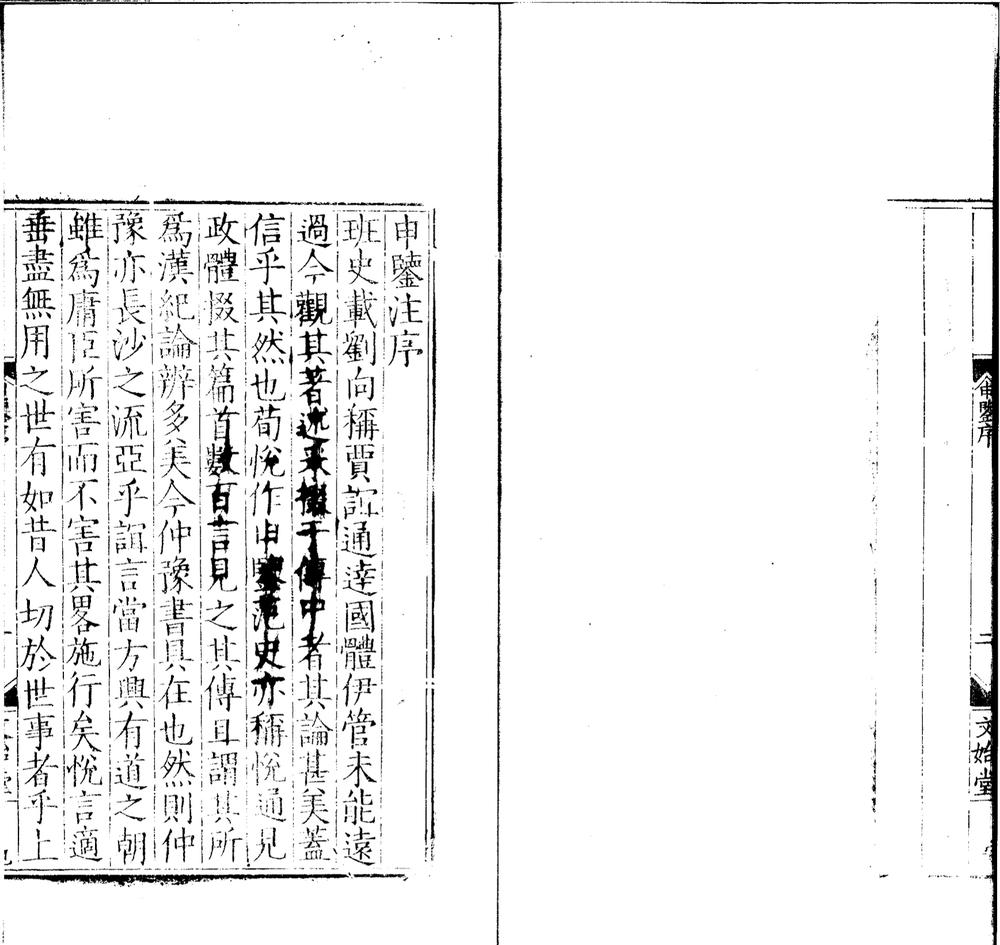 申鑒序
二
文始堂
申鑒注序
班史載劉向稱賈誼通達國體伊管未能遠
過今觀其著述采掇于傳中者其論甚美蓋
信乎其然也荀悅作申鑒范史亦稱悅通見
政體掇其篇首數百言見之其傳且謂其所
爲漢紀論辨多美今仲豫書具在也然則仲
豫亦長沙之流亞乎誼言當方興有道之朝
雖爲庸臣所害而不害其畧施行矣悅言適
垂盡無用之世有如昔人切於世事者乎上